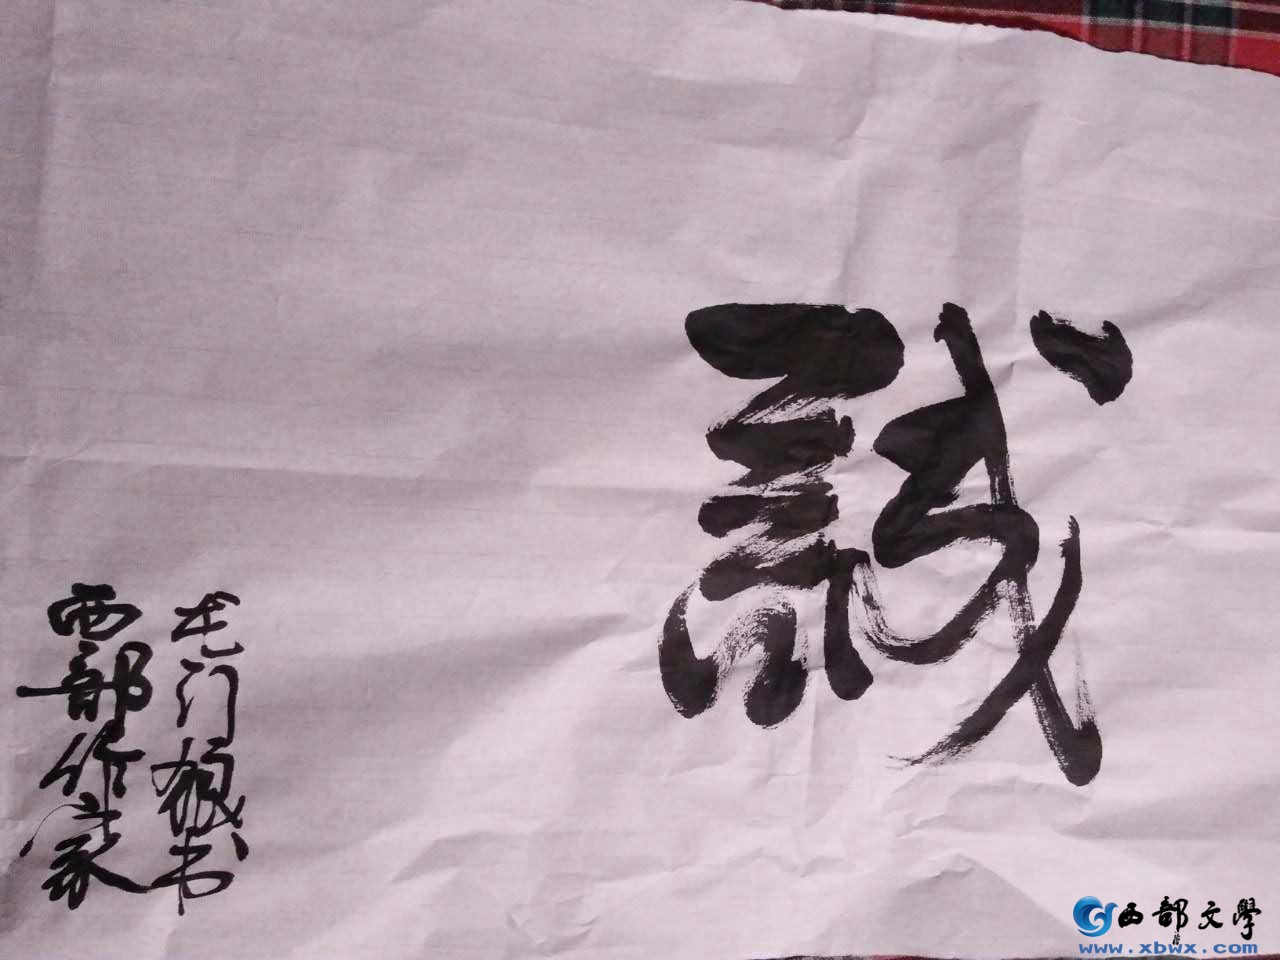 誠
龙门狼书
西部作家
西部文學
www.xbwx.com